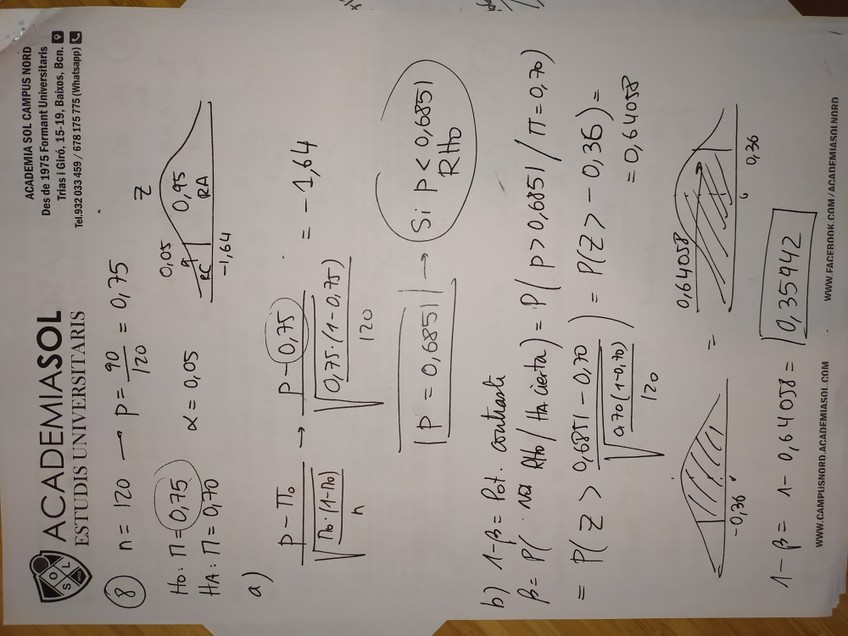 ACADEMIASOL
ESTUDIS UNIVERSITARIS
ACADEMIA SOL CAMPUS NORD
Des de 1975 Formant Universitaris
Trias i Giró, 15-19, Baixos, Bcn.
Tel.932 033 459 / 678 175 775 (Whatsapp)
SOL
8 n = 120 → p = 90/120 = 0,75
H0: Π = 0,75
HA: Π = 0,70
α = 0,05
0,05
Z
0,95
RC
RA
-1,64
a) p - Π0 / √(Π0·(1-Π0)/n) → p - 0,75 / √(0,75·(1-0,75)/120) = -1,64
p = 0,6851 → Si p < 0,6851
RH0
b) 1-β = Pot. contraste
β = P( RH0 / HA cierta) = P( p > 0,6851 / Π = 0,70)
= P( Z > 0,6851 - 0,70 / √(0,70(1-0,70)/120) ) = P(Z > -0,36) =
= 0,64058
-0,36
=
0,64058
0,36
1-β = 1- 0,64058 = 0,35942
WWW.CAMPUSNORD.ACADEMIASOL.COM
WWW.FACEBOOK.COM/ACADEMIASOLNORD